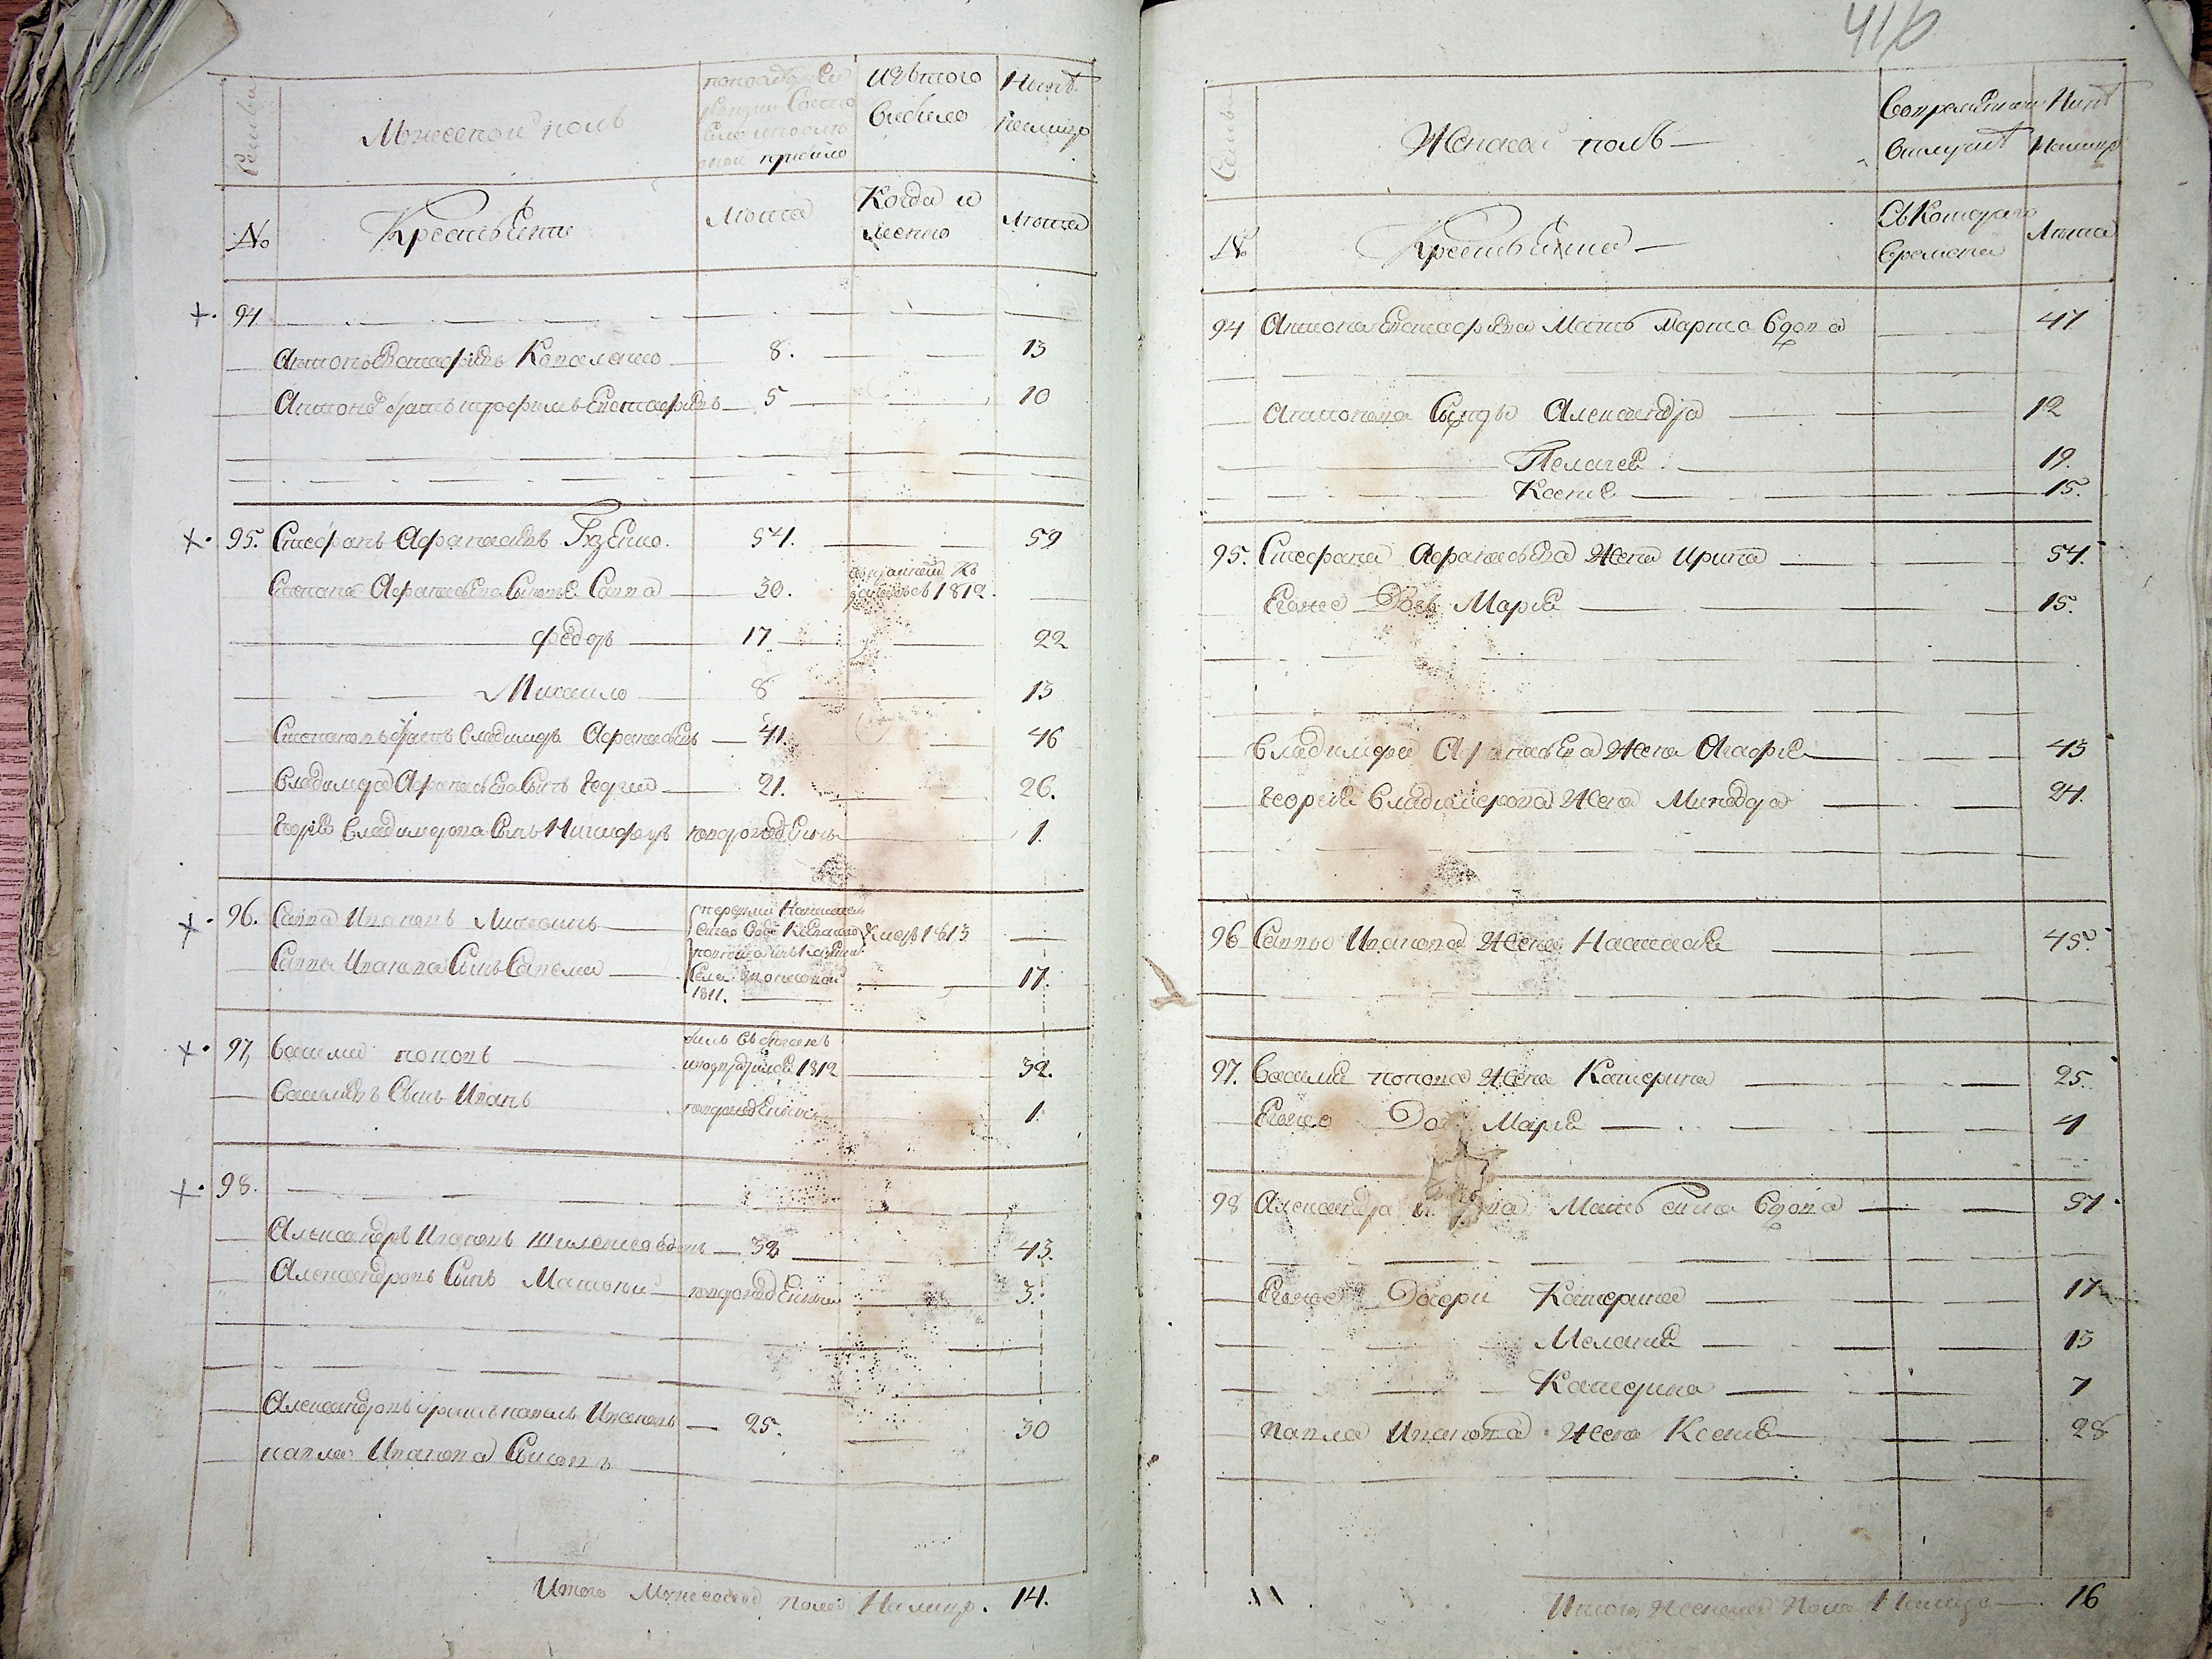 416
Семьи
Мужеской полъ
по последней
ревизии состо
яло и после
оной прибыло
Изътого
выбило
Ныне
налицо
№
Крестьяне
Лѣта
Когда и
имено
Лѣта
94
Антонъ Евстафіевъ Коваленко 8. 13
Антона братъ трофимъ Евстафіевъ 5 10
95. Стефанъ Афанасіевъ Гузенко. 54. 59
Степана Афанасьева Сыновьѣ Савва 30. 1812.
Федоръ 17 22
Михаило 8 13
Степановъ братъ Владимеръ Афанасьевъ 41. 46
Владимера Афанасьева Сынъ Георгий 21. 26.
Георгія Владимерова Сынъ Никифоръ новорожденъ 1.
96. Савва Ивановъ Умеръ 1813
Савва Иванова Сынъ Савелий 1811. 17.
97. Василий Поповъ 1812 32.
Васильевъ Сынъ Иванъ новорожденъ 1.
98.
Александръ Ивановъ 38 43.
Александровъ Сынъ новорожденъ 3.
Александровъ братъ павелъ Ивановъ 25. 30
павла Иванова Сыновъ
Итого Мужеска пола Налицо. 14.
Семьи
Женской полъ
Вовремянной
отлучкѣ
Ныне
Налицо
№
Крестьяне
Съ Котораго
времени
Лѣта
94 Антона Евстафіева Мать Марта вдова 47
Антонова Сестры Александра 12
Пелагея 19.
Ксенія 15.
95. Стефана Афанасьева Жена Ирина 54.
Егоже Дочь Марія 15.
Владимера Афанасьева Жена Агафія 43
Георгія Владимерова Жена Минодора 24.
96 Саввы Иванова Жена Наталія 45.
97. Василия попова Жена Катерина 25.
Егоже Дочь Марія 4
98 Александра Мать вдова 57
Егоже Дочери Катерина 17
Меланія 13
Катерина 7
Павла Иванова Жена Ксенія 28
Итого Женска Пола Налицо 16